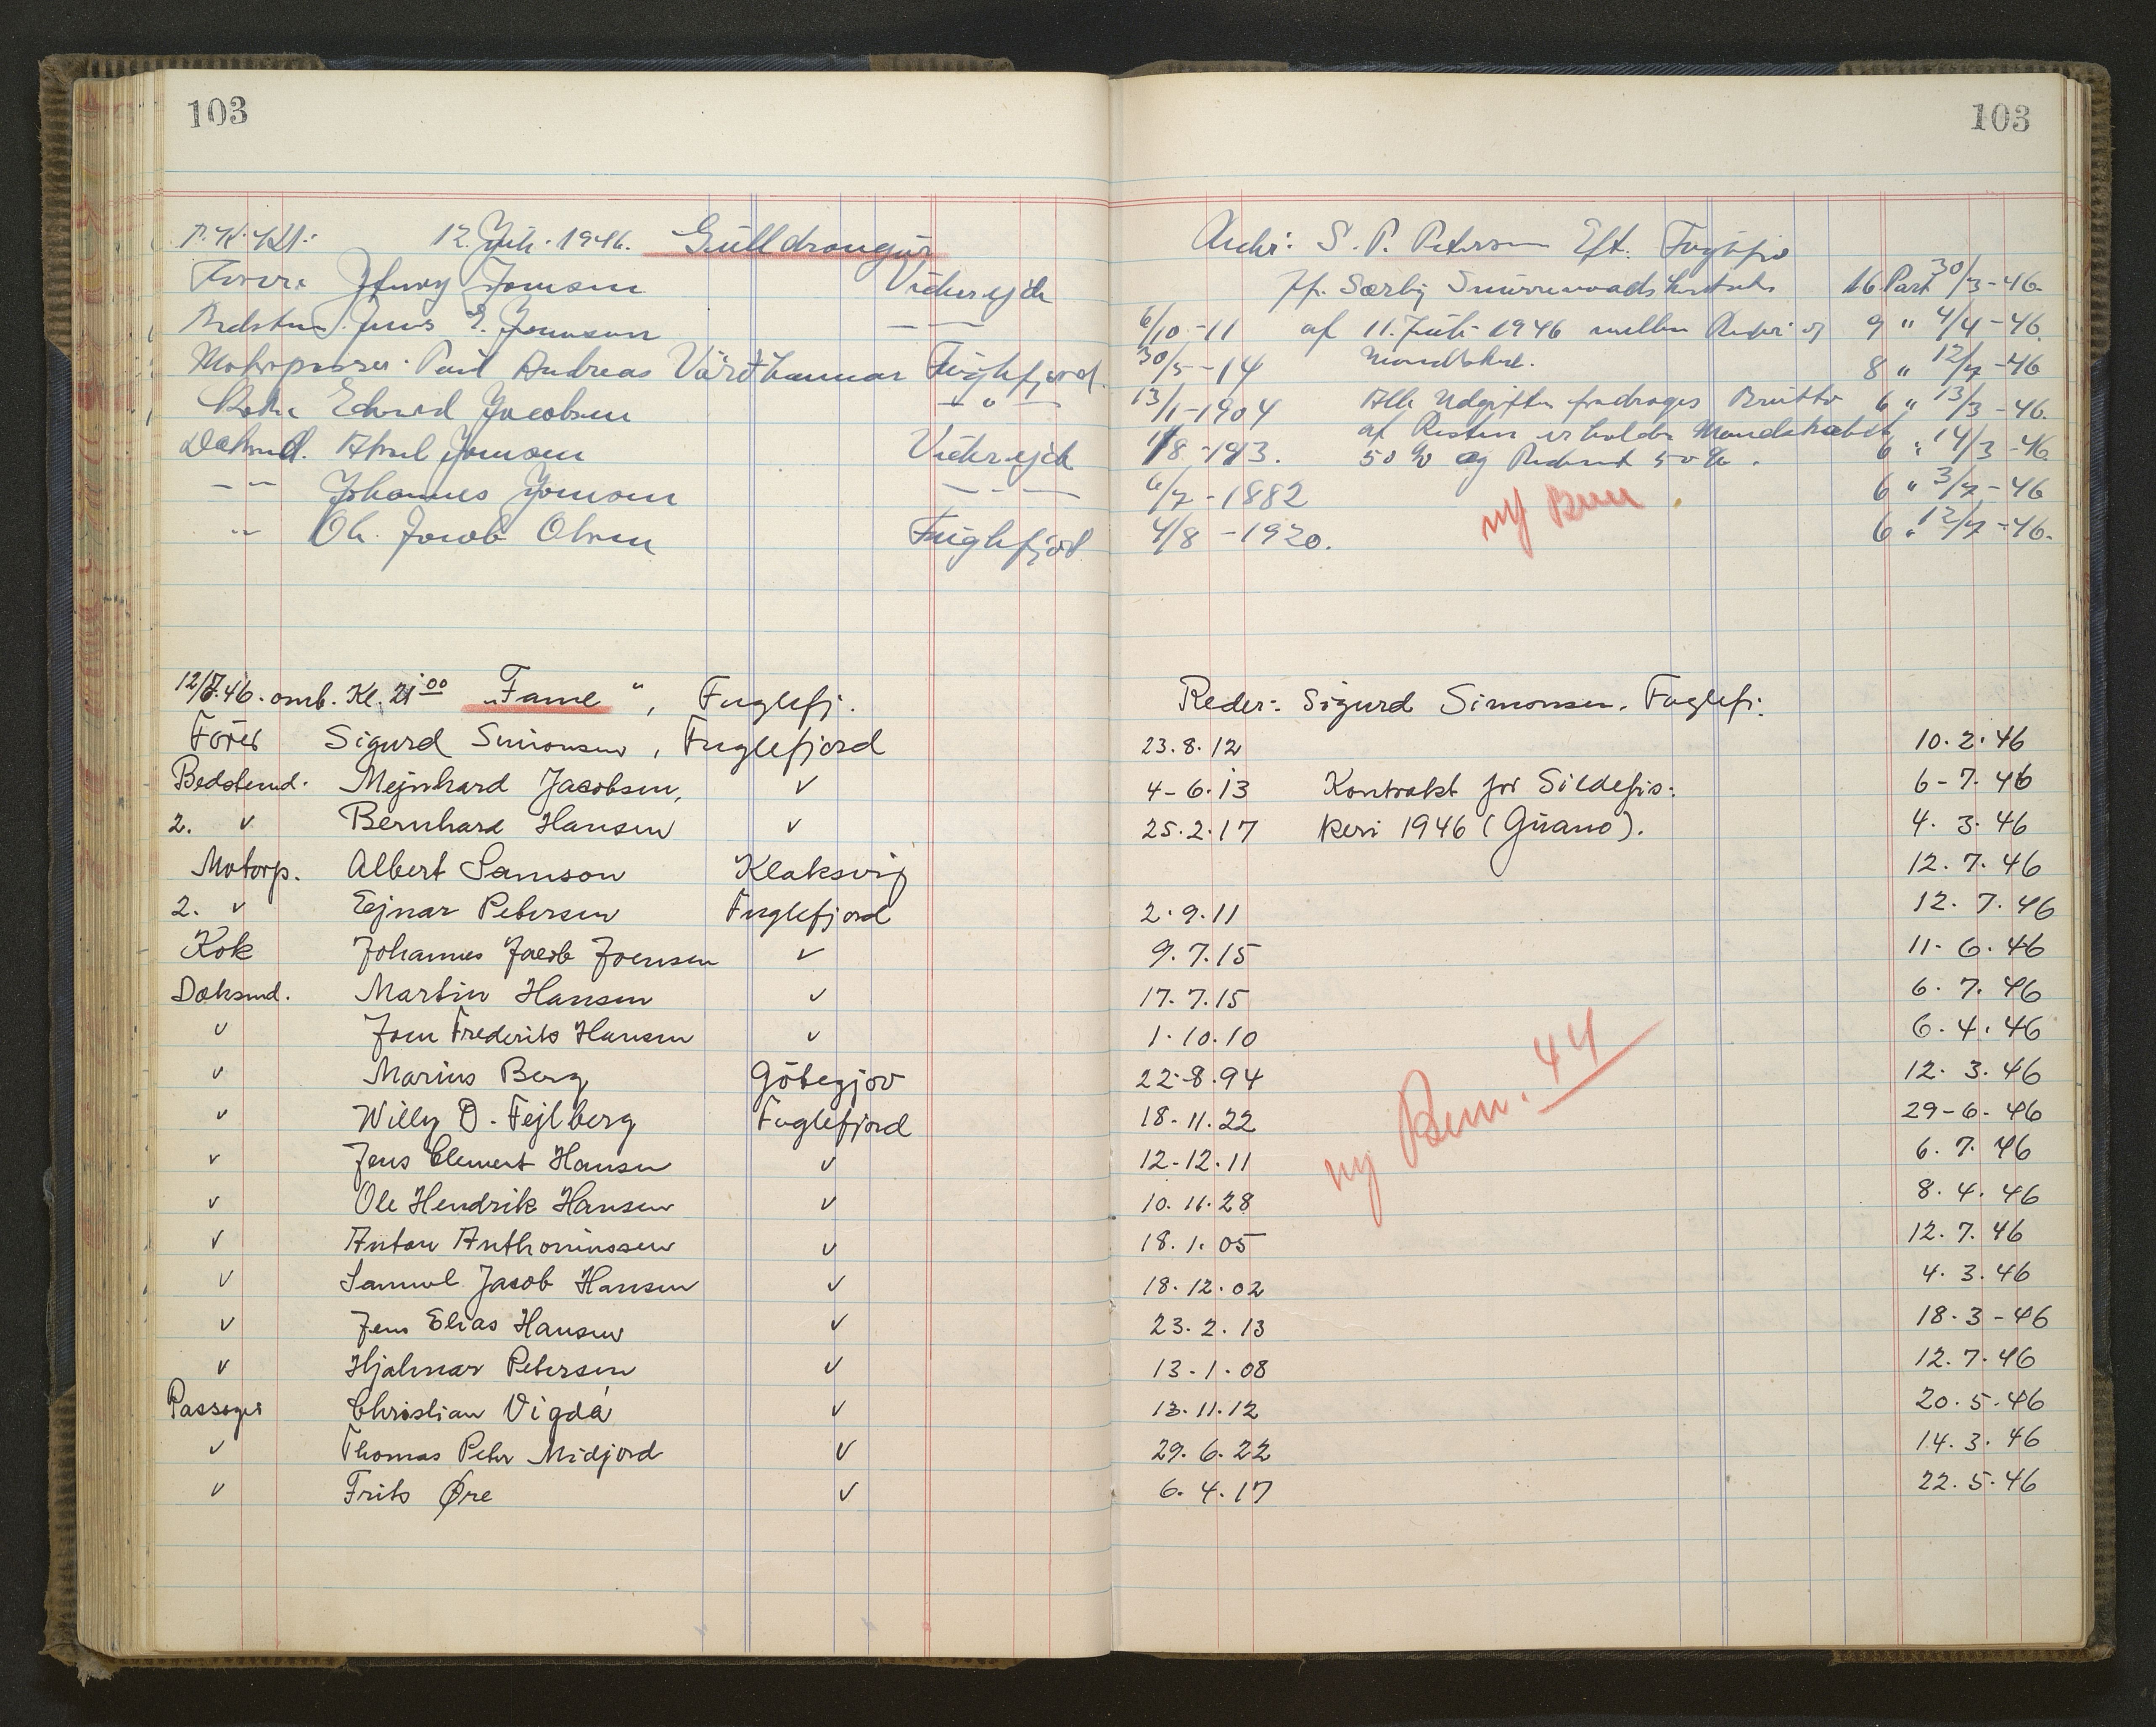 103
103
12. Juli 1946. Gulldrangur
Reder: S. P. Petersen Eft. Fuglefjo
Fører: Joensen Viderejde 16 Part 30/3-46.
Bedstem. Jens E. Joensen — — 6/10-11 af 11. Juli 1946 mellem Rederi og 9 " 4/4-46.
Motorpasser: Paul Andreas Fuglefjord. 30/5-14 Mandskab. 8 " 12/7-46
Kok: Edvard Jacobsen — " — 13/1-1904 Alle Udgifter fradrages Brutto 6 " 13/3-46.
af Resten erholder Mandskabet
Dæksmd. Joensen Viderejde 50 % og Rederiet 50 %. 6 " 14/3-46.
— " — Johannes Joensen — — — 6/7-1882 6 " 3/7-46
" Ole Jacob Olsen Fuglefjord 4/8-1920. 6 " 12/7-46.
ny Bem
12/7.46. omb. Kl. 21 00 "Fame", Fuglefj. Reder: Sigurd Simonsen. Fuglefj.
Fører Sigurd Simonsen, Fuglefjord 23.8.12 10.2.46
Bedstemd. Mejnhard Jacobsen, v 4-6.13 Kontrakt for Sildefis- 6-7.46
2. v Bernhard Hansen v 25.2.17 keri 1946 (Guano). 4.3.46
Motorp. Albert Samson Klaksvig 12.7.46
2. v Ejnar Petersen Fuglefjord 2.9.11 12.7.46
Kok Johannes Jacob Joensen v 9.7.15 11-6.46
Dæksmd. Martin Hansen v 17.7.15 6.7.46
v Joen Frederik Hansen v 1.10.10 6.4.46
v Marius Berg Götegjov 22-8.94 12.3.46
v Willy D. Fejlberg Fuglefjord 18.11.22 29-6-46
v Jens Clement Hansen v 12-12.11 6.7.46
v Ole Hendrik Hansen v 10.11.28 8.4.46
v Anton Anthoniussen v 18.1.05 12.7.46
v Samuel Jacob Hansen v 18.12.02 4.3.46
v Jens Elias Hansen v 23.2.13 18.3-46
v Hjalmar Petersen v 13-1.08 12.7.46
Passager Christian Vigdá v 13.11.12 20.5.46
v Thomas Peter Midjord v 29.6.22 14.3.46
v Frits Øre v 6.4.17 22.5.46
ny Bem. 44